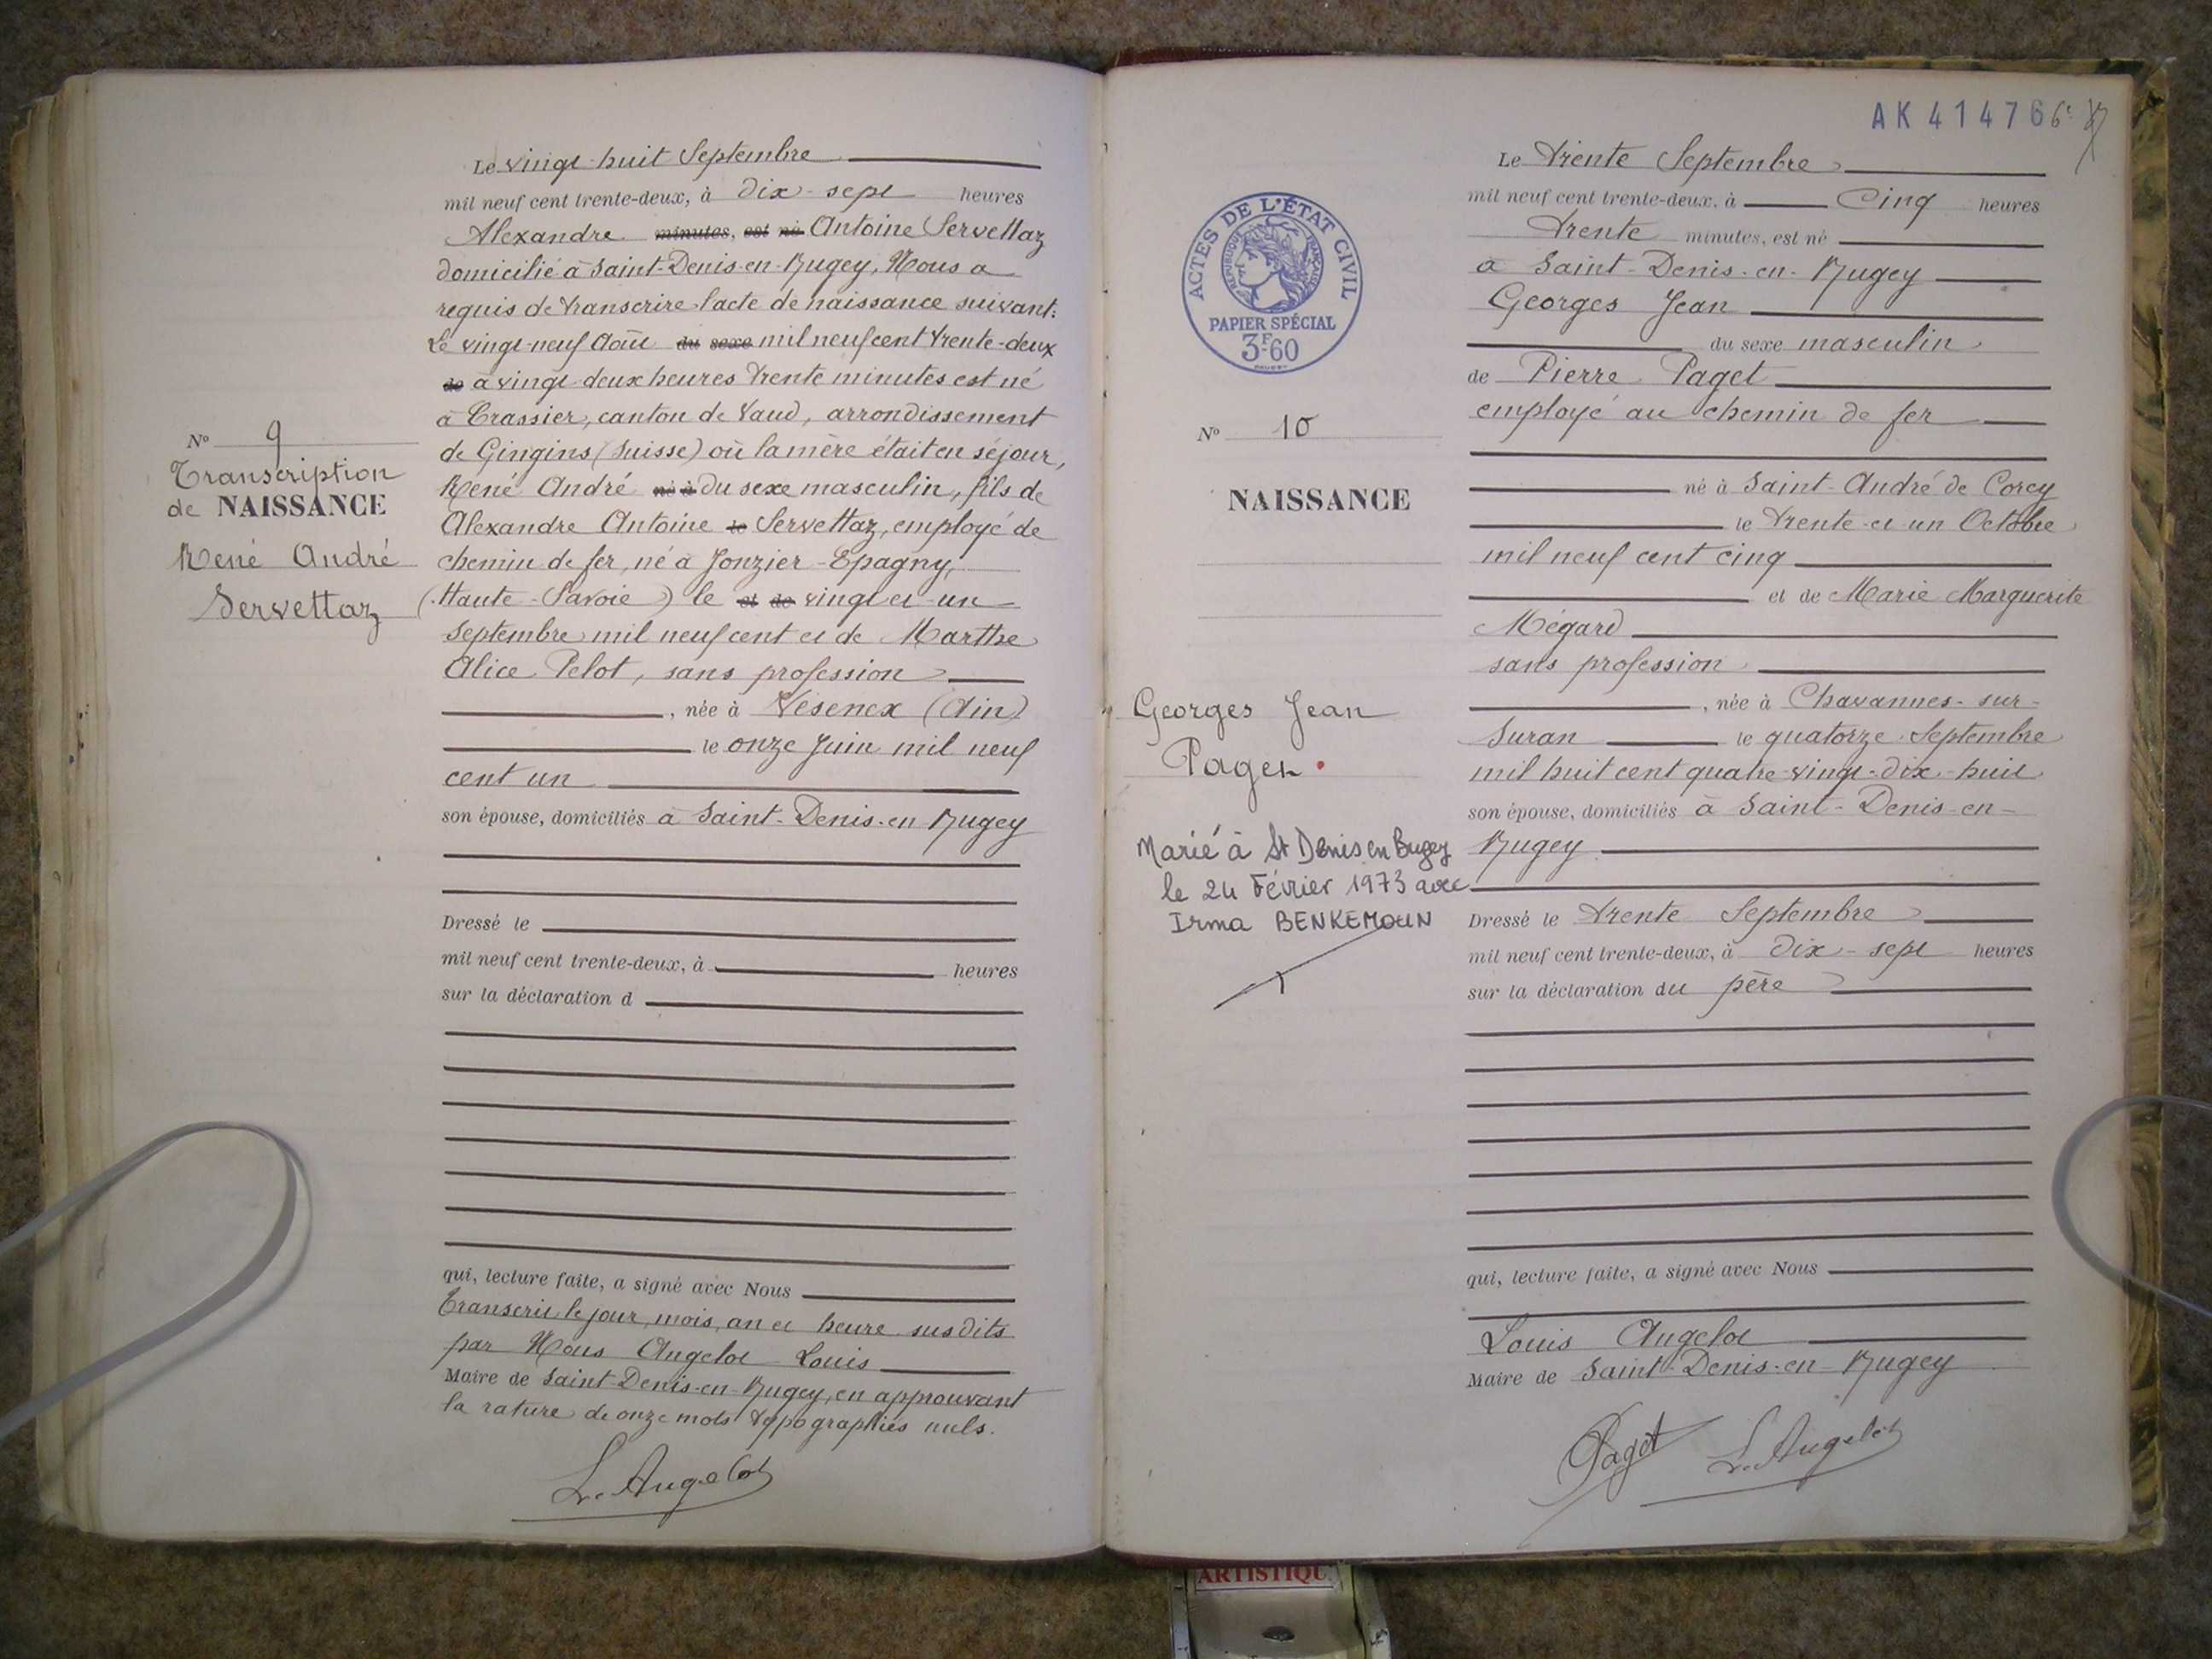 Le vingt-huit Septembre
mil neuf cent trente-deux, à dix-sept heures
Alexandre minutes, est né Antoine Servettaz
domicilié à Saint-Denis-en-Bugey, Nous a
requis de transcrire l'acte de naissance suivant:
Le vingt-neuf Août du sexe mil neuf cent trente-deux
de à vingt-deux heures trente minutes est né
à Crassier, canton de Vaud, arrondissement
de Gingins (Suisse) où la mère était en séjour,
René André né à du sexe masculin, fils de
Alexandre Antoine le Servettaz, employé de
chemin de fer, né à Jonzier-Epagny,
(Haute-Savoie) le et de vingt et un
Septembre mil neuf cent et de Marthe
Alice Pelot, sans profession
, née à Vesenex (Ain)
le onze Juin mil neuf
cent un
son épouse, domiciliés à Saint-Denis-en Bugey
Dressé le
mil neuf cent trente-deux, à heures
sur la déclaration d
qui, lecture faite, a signé avec Nous
Transcrit le jour, mois, an et heure susdits
par Nous Angelot Louis
Maire de Saint-Denis-en-Bugey, en approuvant
la rature de onze mots typographiés nuls.
L. Angelot
N° 9
Transcription
de NAISSANCE
René André
Servettaz
AK 414766
Le trente Septembre
mil neuf cent trente-deux, à Cinq heures
trente minutes, est né
à Saint-Denis-en-Bugey
Georges Jean
du sexe masculin
de Pierre Paget
employé au chemin de fer
né à Saint-André de Corcy
le trente-et-un Octobre
mil neuf cent cinq
et de Marie Marguerite
Mégard
sans profession
, née à Chavannes-sur-
Suran le quatorze Septembre
mil huit cent quatre-vingt-dix-huit
son épouse, domiciliés à Saint-Denis-en-
Bugey
Dressé le trente Septembre
mil neuf cent trente-deux, à dix-sept heures
sur la déclaration du père
qui, lecture faite, a signé avec Nous
Louis Angelot
Maire de Saint-Denis-en-Bugey
Paget L. Angelot
ACTES DE L'ÉTAT CIVIL
RÉPUBLIQUE FRANÇAISE
PAPIER SPÉCIAL
3F60
N° 10
NAISSANCE
Georges Jean
Paget
Marié à St Denis en Bugey
le 24 Février 1973 avec
Irma BENKEMOUN
ARTISTIQU